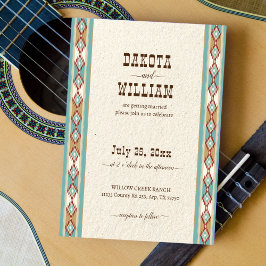 DAKOTA
and
WILLIAM
are getting married
please join us to celebrate
July 26, 20xx
at 2 o'clock in the afternoon
WILLOW CREEK RANCH
11535 County Rd 285, Arp, TX 75750
reception to follow